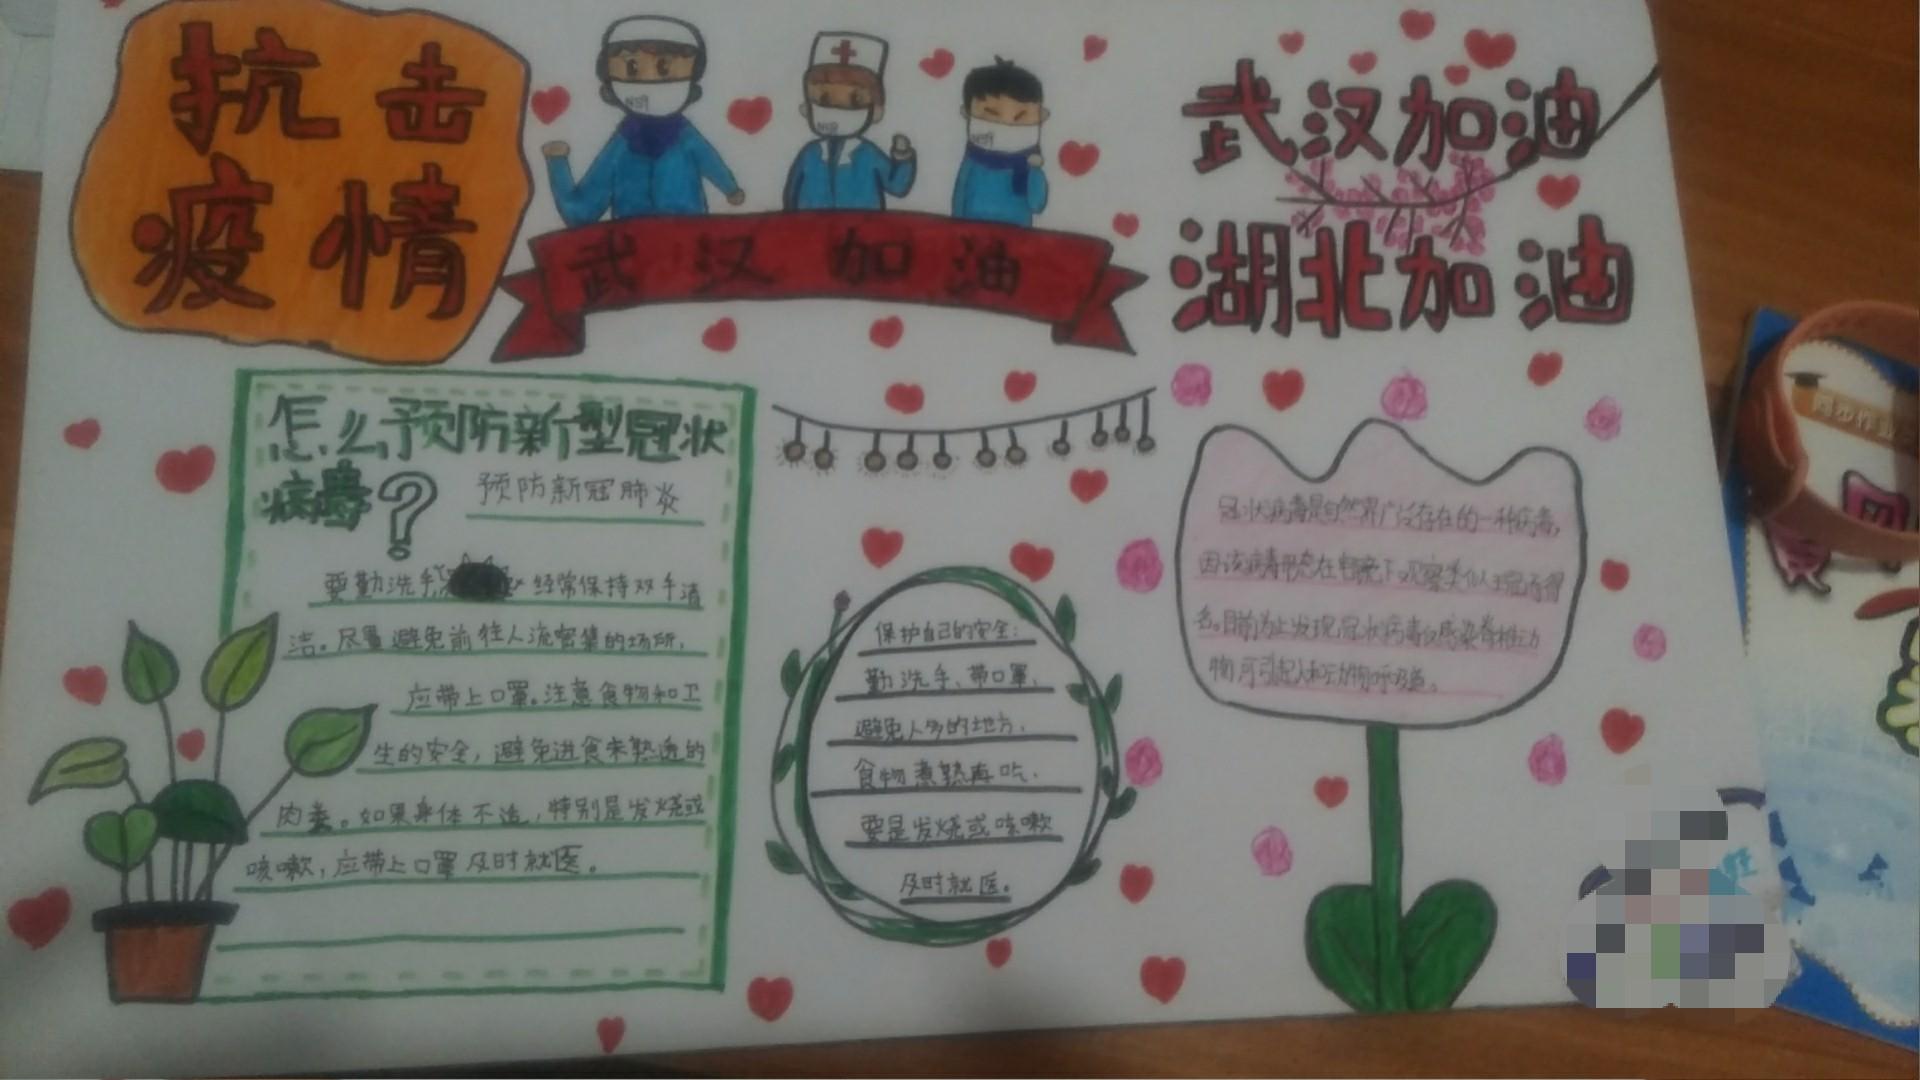 抗击
疫情
N59
N59
N59
武汉加油
武汉加油
湖北加油
怎么预防新型冠状
病毒?
预防新冠肺炎
要勤洗手, 经常保持双手清
洁。尽量避免前往人流密集的场所,
应带上口罩。注意食物和卫
生的安全,避免进食未熟透的
肉类。如果身体不适,特别是发烧或
咳嗽,应带上口罩及时就医。
保护自己的安全:
勤洗手、带口罩、
避免人多的地方、
食物煮熟再吃、
要是发烧或咳嗽
及时就医。
冠状病毒是自然界广泛存在的一种病毒,
因该病毒形态在电镜下观察类似王冠而得
名。目前为止发现,冠状病毒仅感染脊椎动
物可引起人和动物呼吸道。
同步作业